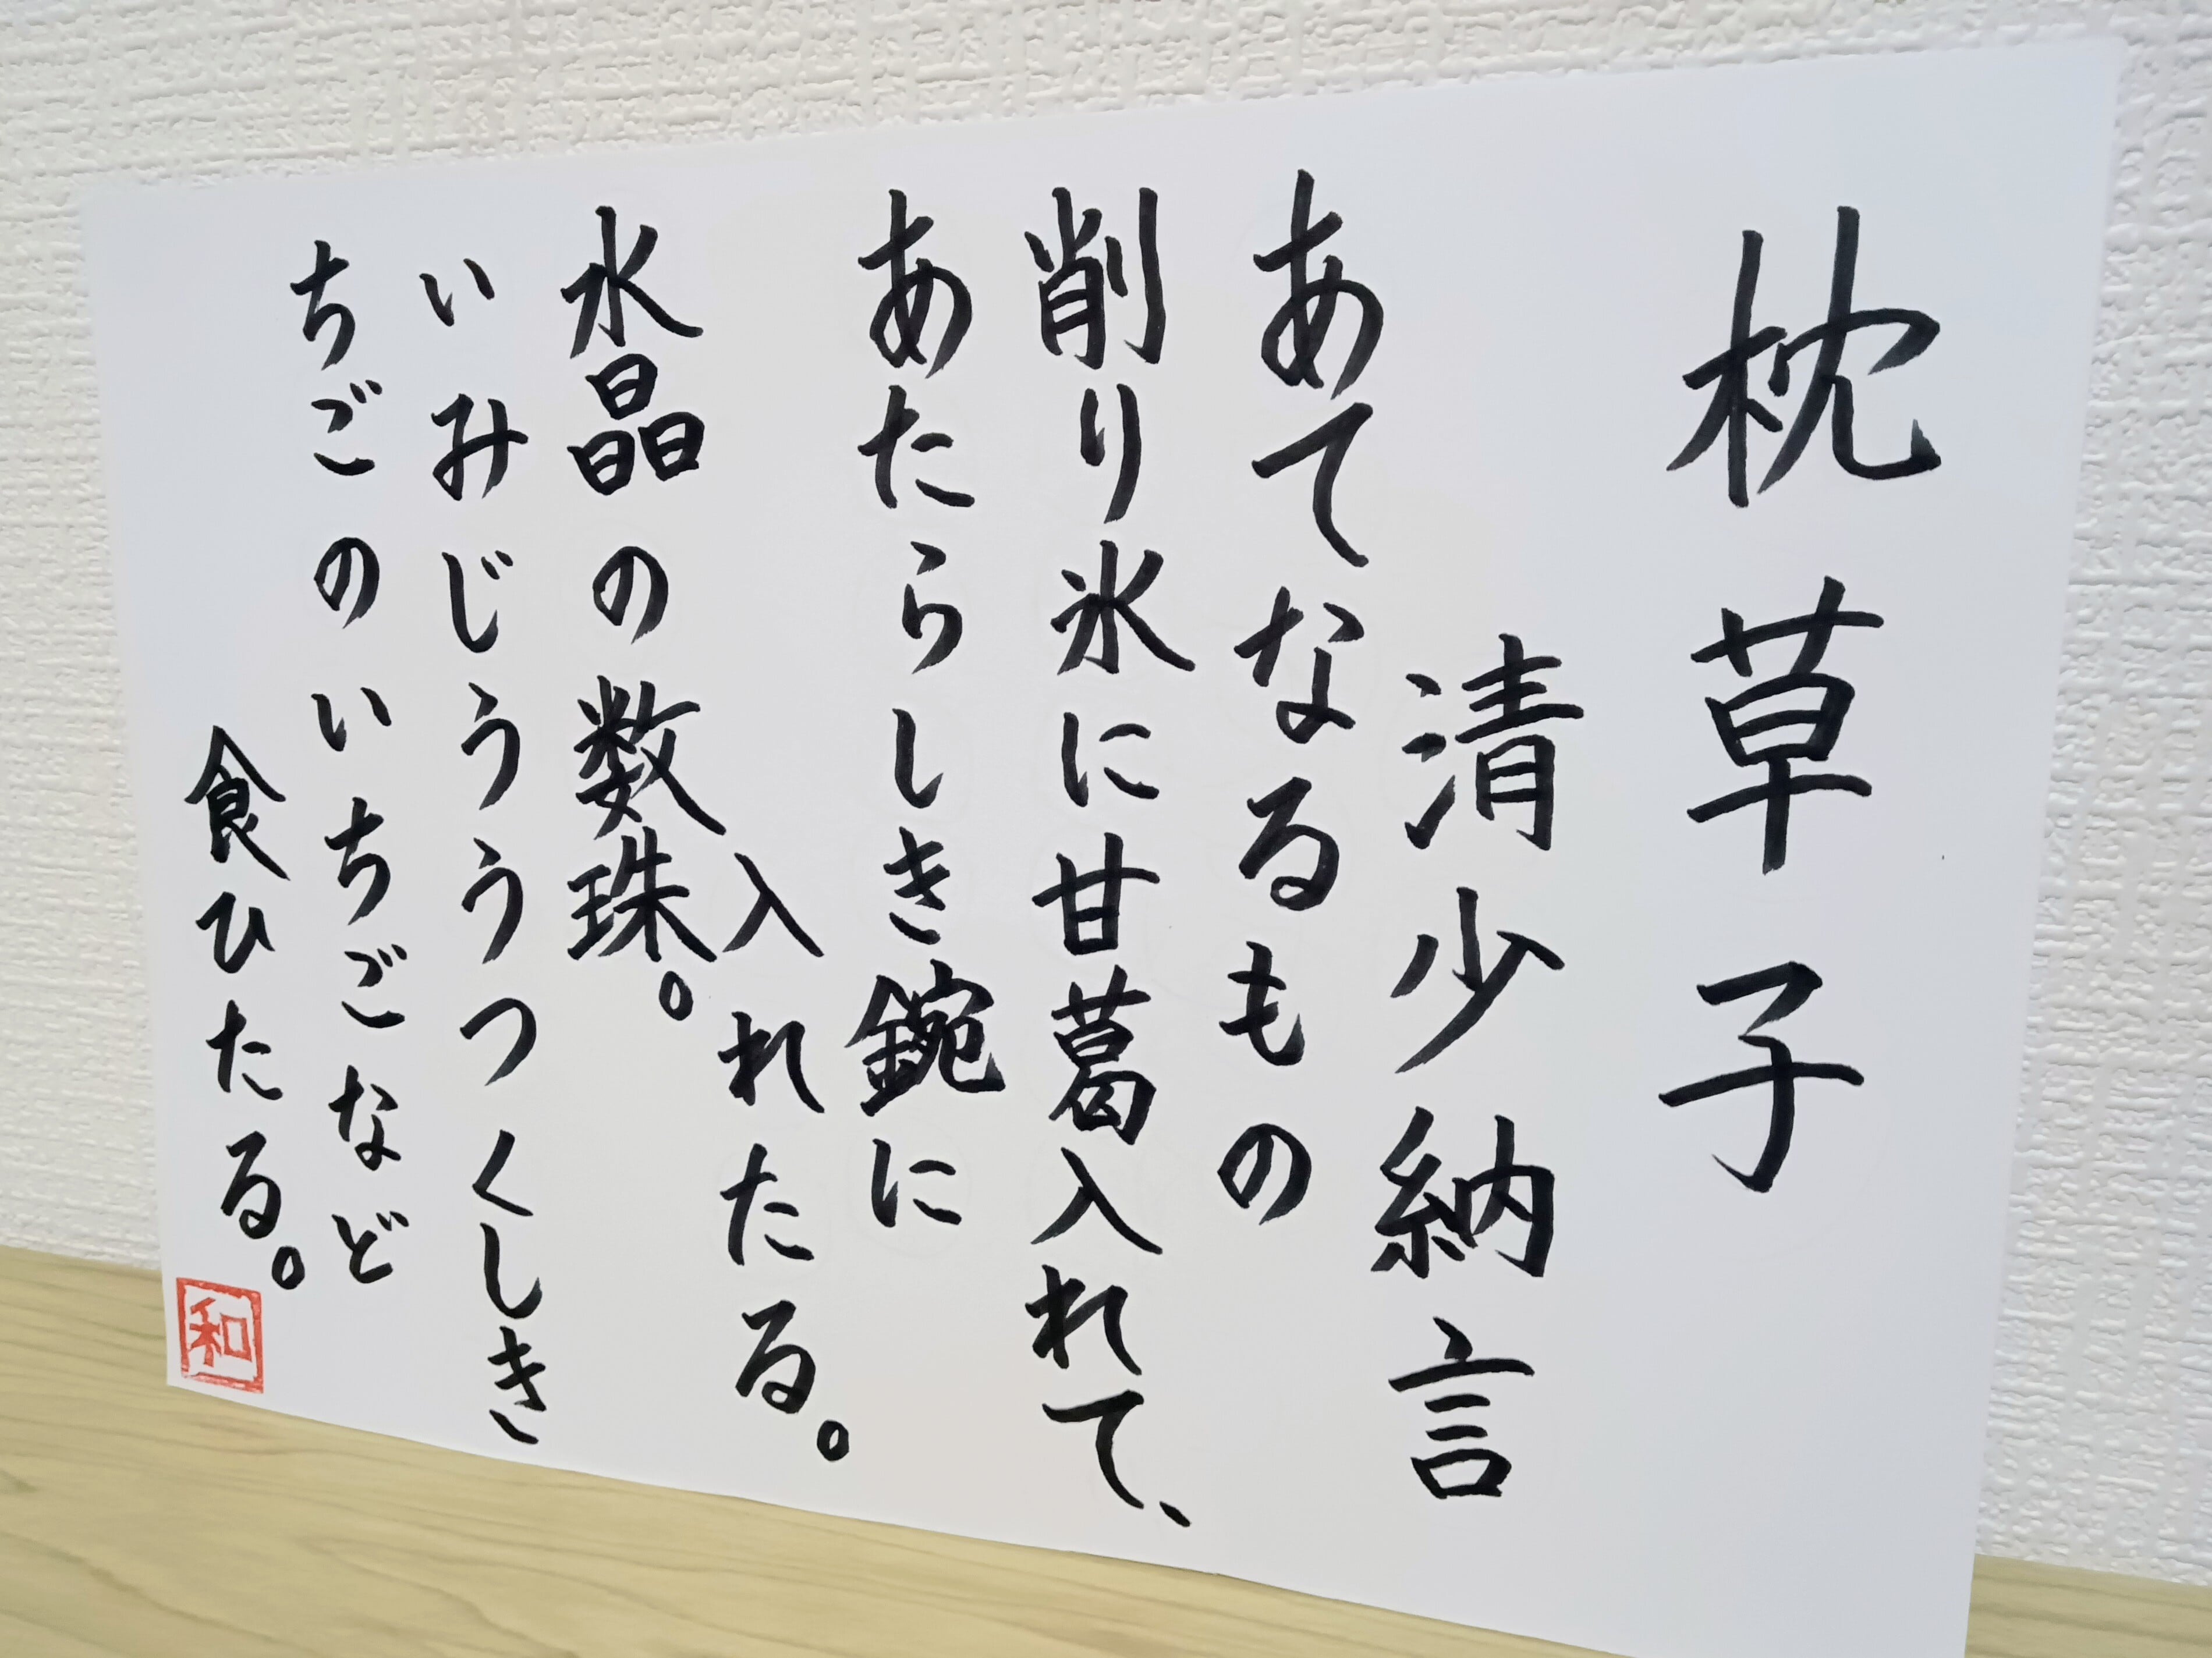 枕草子
清少納言
あてなるもの
削り氷に甘葛入れて、
あたらしき鋺に
入れたる。
水晶の数珠。
いみじううつくしき
ちごのいちごなど
食ひたる。
和